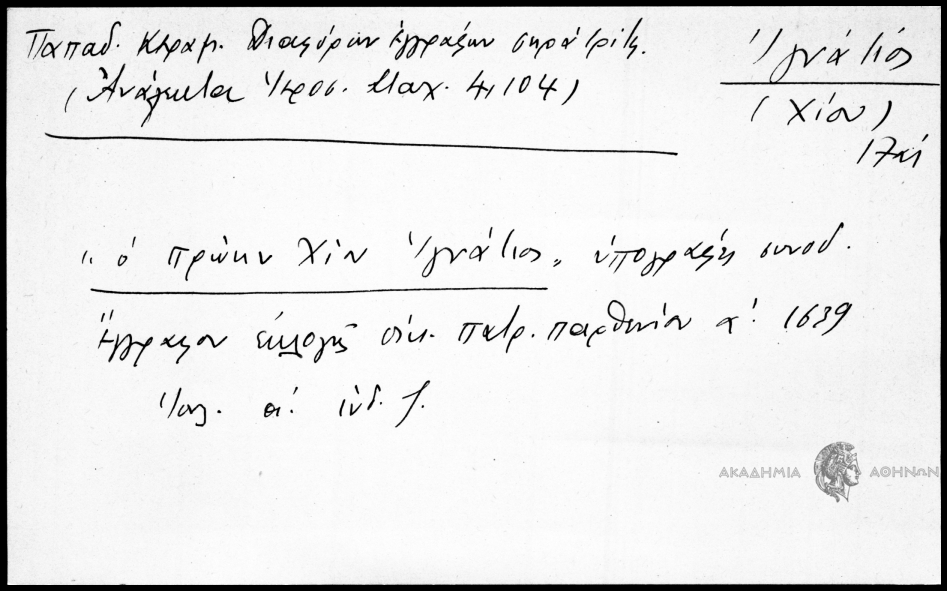 Παπαδ. Κεραμ. Διαφόρων ἐγγράφων
(Ἀνάλεκτα Ἱεροσ. Σταχ. 4, 104)
Ἰγνάτιος
(Χίου)
17ος
"ὁ πρώην Χίου Ἰγνάτιος" ὑπογράφει συνοδ.
ἔγγραφον ἐκλογῆς οἰκ. πατρ. Παρθενίου α΄. 1639
Ἰουλ. ἰνδ. ζ.
ΑΚΑΔΗΜΙΑ ΑΘΗΝΩΝ